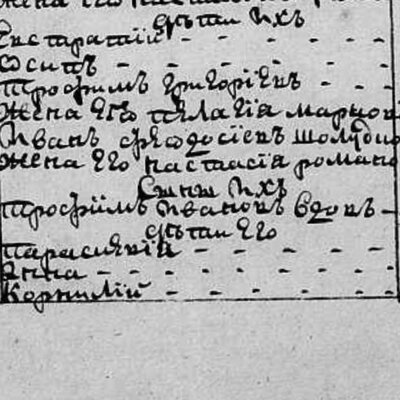 жена его
дѣти ихъ
Евстратій
Осипъ
Трофимъ Григоріевъ
жена его Пелагія Марков
Иванъ Ѳеодосіевъ Шолудко
жена его Настасія Романо
Сынъ ихъ
Трофимъ Ивановъ вдовъ
дѣти его
Параскевій
Анна
Корнилій